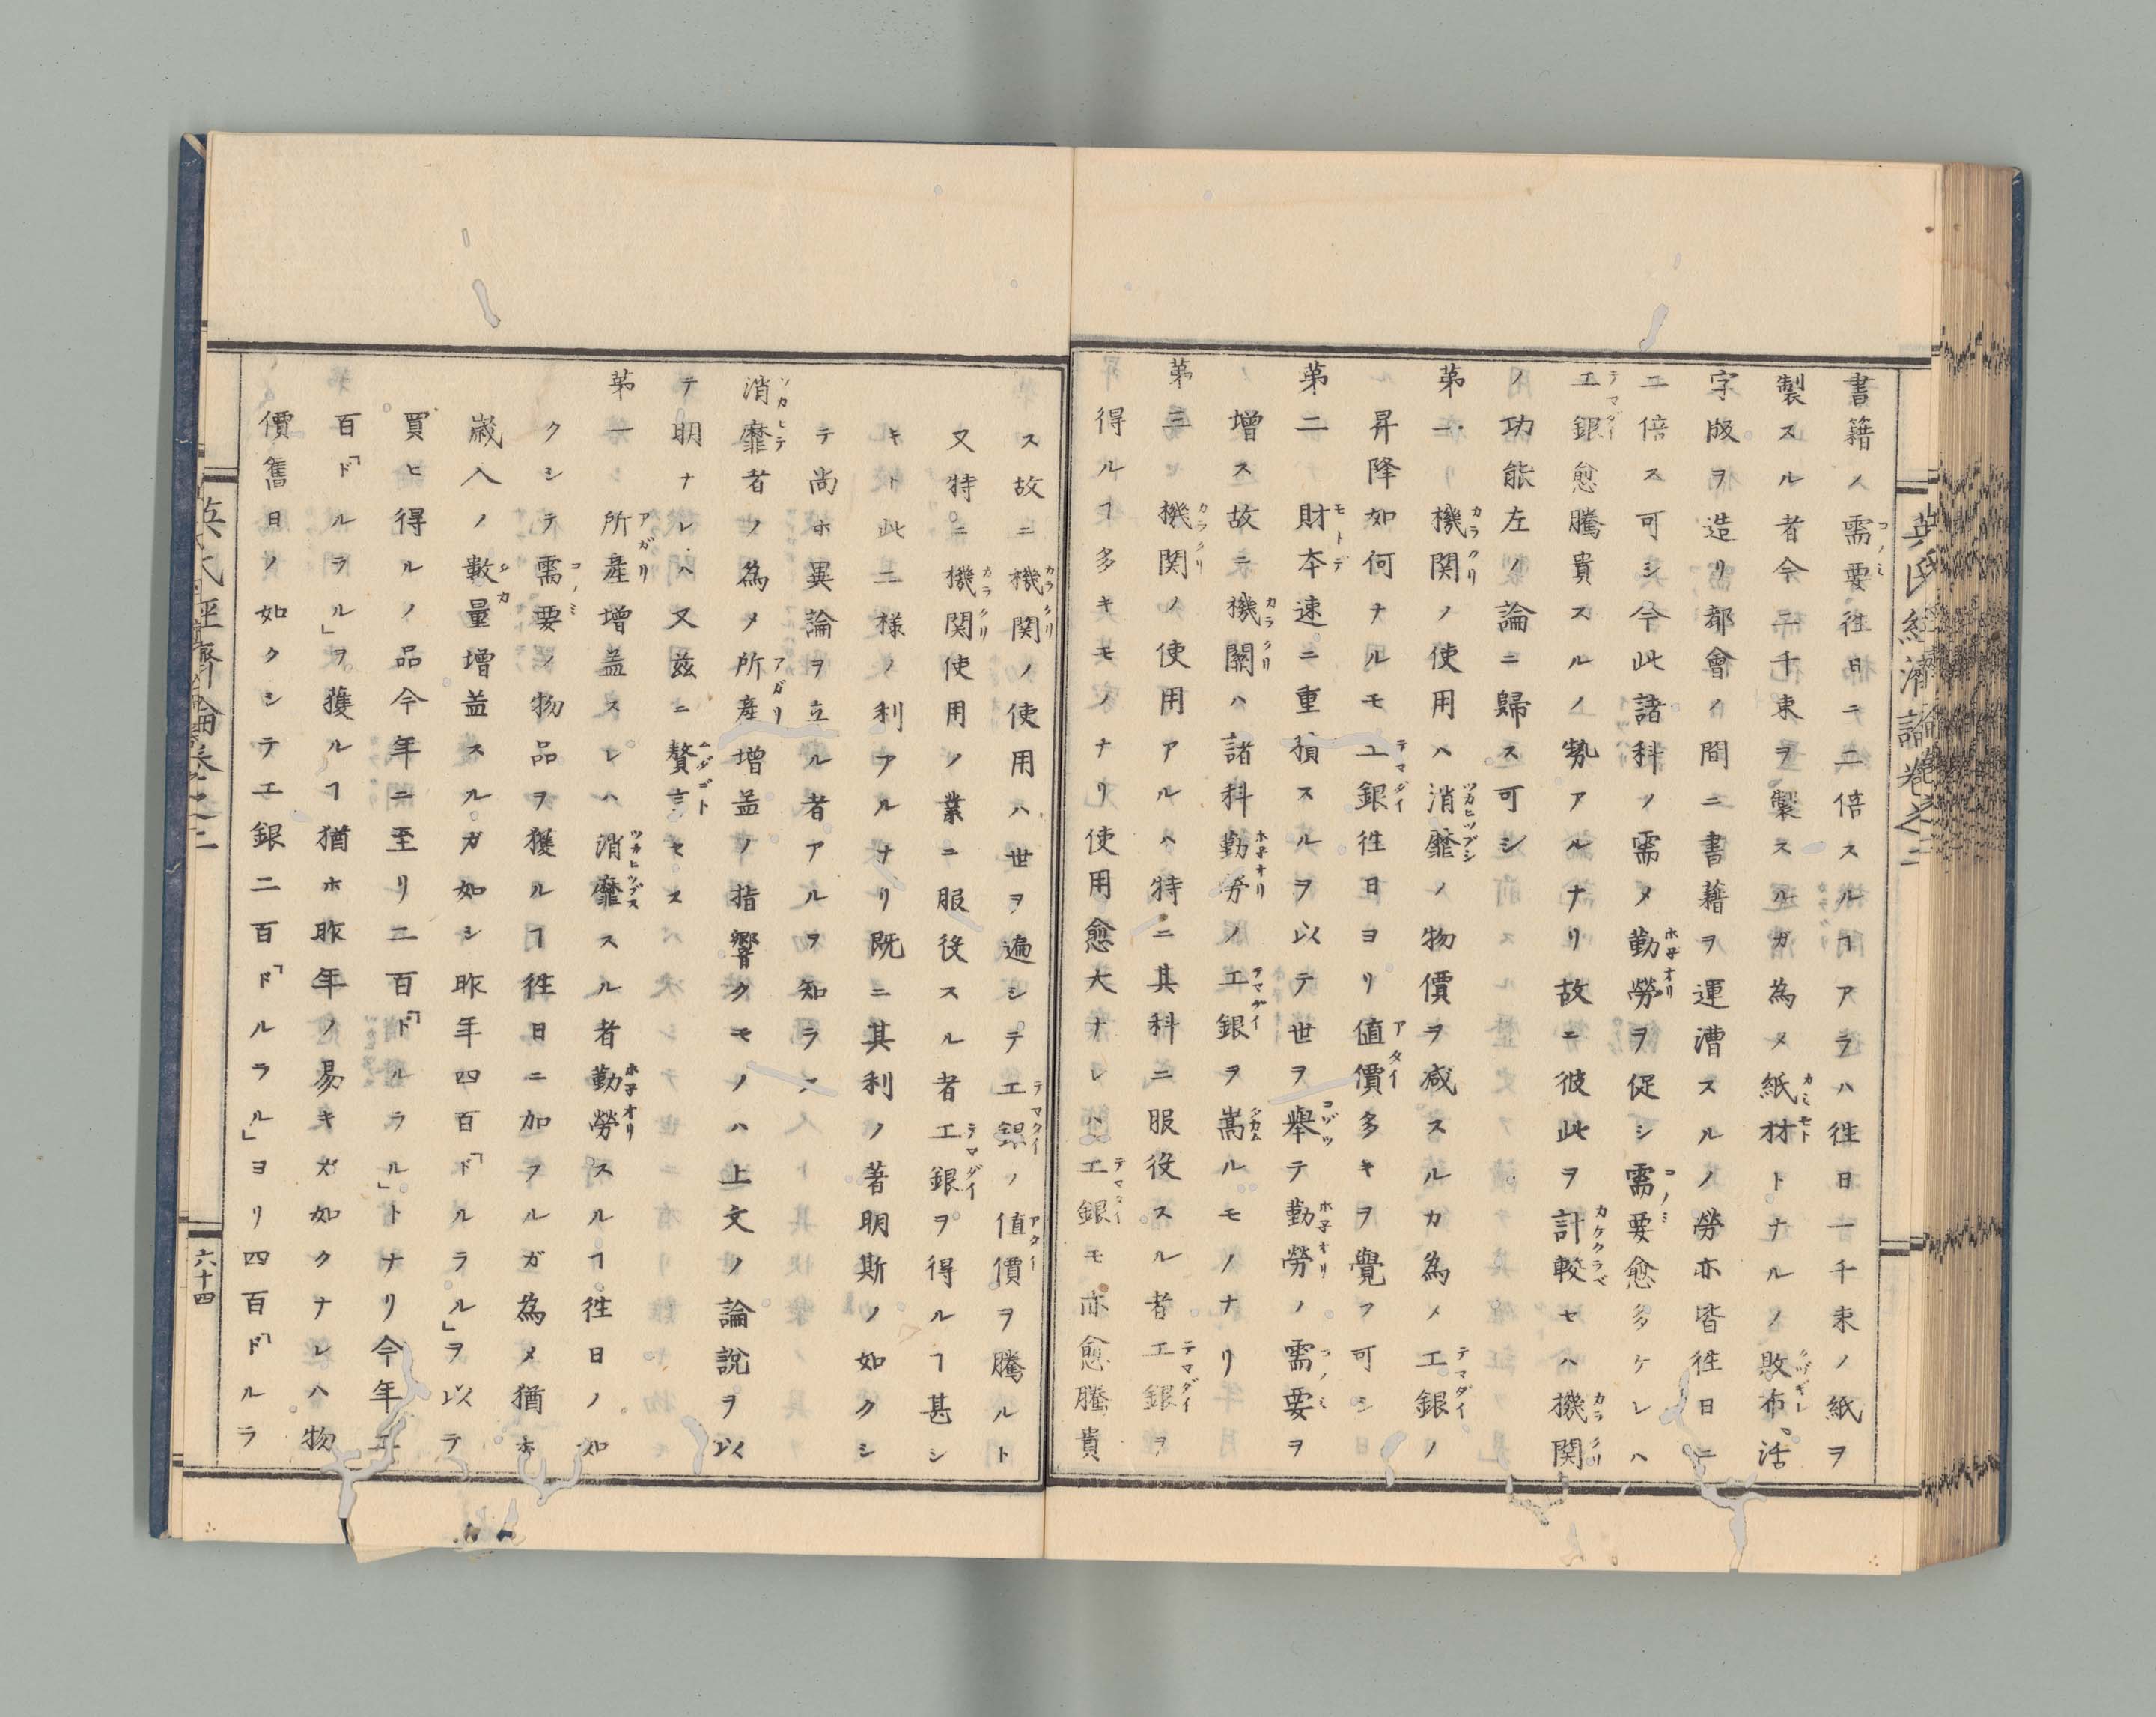 英氏經濟論卷之二
書籍ノ需要往日ニ二倍スルヿアラハ徃日一千束ノ紙ヲ
製スル者今二千束ヲ製スルガ為メ紙材トナルノ敗布、活
字版ヲ造リ都會ノ間ニ書籍ヲ運漕スルノ勞亦皆徃日ニ
二倍ス可シ今此諸科ノ需メ勤勞ヲ促シ需要愈多ケレハ
工銀愈騰貴スルノ勢アルナリ故ニ彼此ヲ計較セハ機関
ノ功能左ノ論ニ歸ス可シ
第一機関ノ使用ハ消靡ノ物價ヲ减スルカ為メ工銀ノ
昇降如何ナルモ工銀徃日ヨリ値價多キヲ覺フ可シ
第二財本速ニ重積スルヲ以テ世ヲ舉テ勤勞ノ需要ヲ
增ス故ニ機關ハ諸科勤勞ノ工銀ヲ嵩ルモノナリ
第三機関ノ使用アルハ特ニ其科ニ服役スル者工銀ヲ
得ルヿ多キモノナリ使用愈大ナレハ工銀モ亦愈騰貴
ス故ニ機関ノ使用ハ世ヲ遍シテ工銀ノ値價ヲ騰ルト
又特ニ機関使用ノ業ニ服役スル者工銀ヲ得ルヿ甚シ
キト此二様ノ利アルナリ既ニ其利ノ著明斯ノ如クシ
テ尚ホ異論ヲ立ル者アルヲ知ラス
消靡者ノ為メ所產增益ノ指響クモノハ上文ノ論說ヲ以
テ明ナレハ又玆ニ贅言セス
第一所產增益スレハ消靡スル者勤勞スルヿ徃日ノ如
クシテ需要ノ物品ヲ獲ルヿ徃日ニ加フルガ為メ猶ホ
歲入ノ數量增益スルガ如シ昨年四百「ドルラル」ヲ以テ
買ヒ得ルノ品今年ニ至リ二百「ドルラル」トナリ今年二
百「ドルラル」ヲ獲ルヿ猶ホ昨年ノ易キガ如クナレハ物
價舊日ノ如クシテ工銀二百「ドルラル」ヨリ四百「ドルラ
英氏經濟論卷之二
六十四